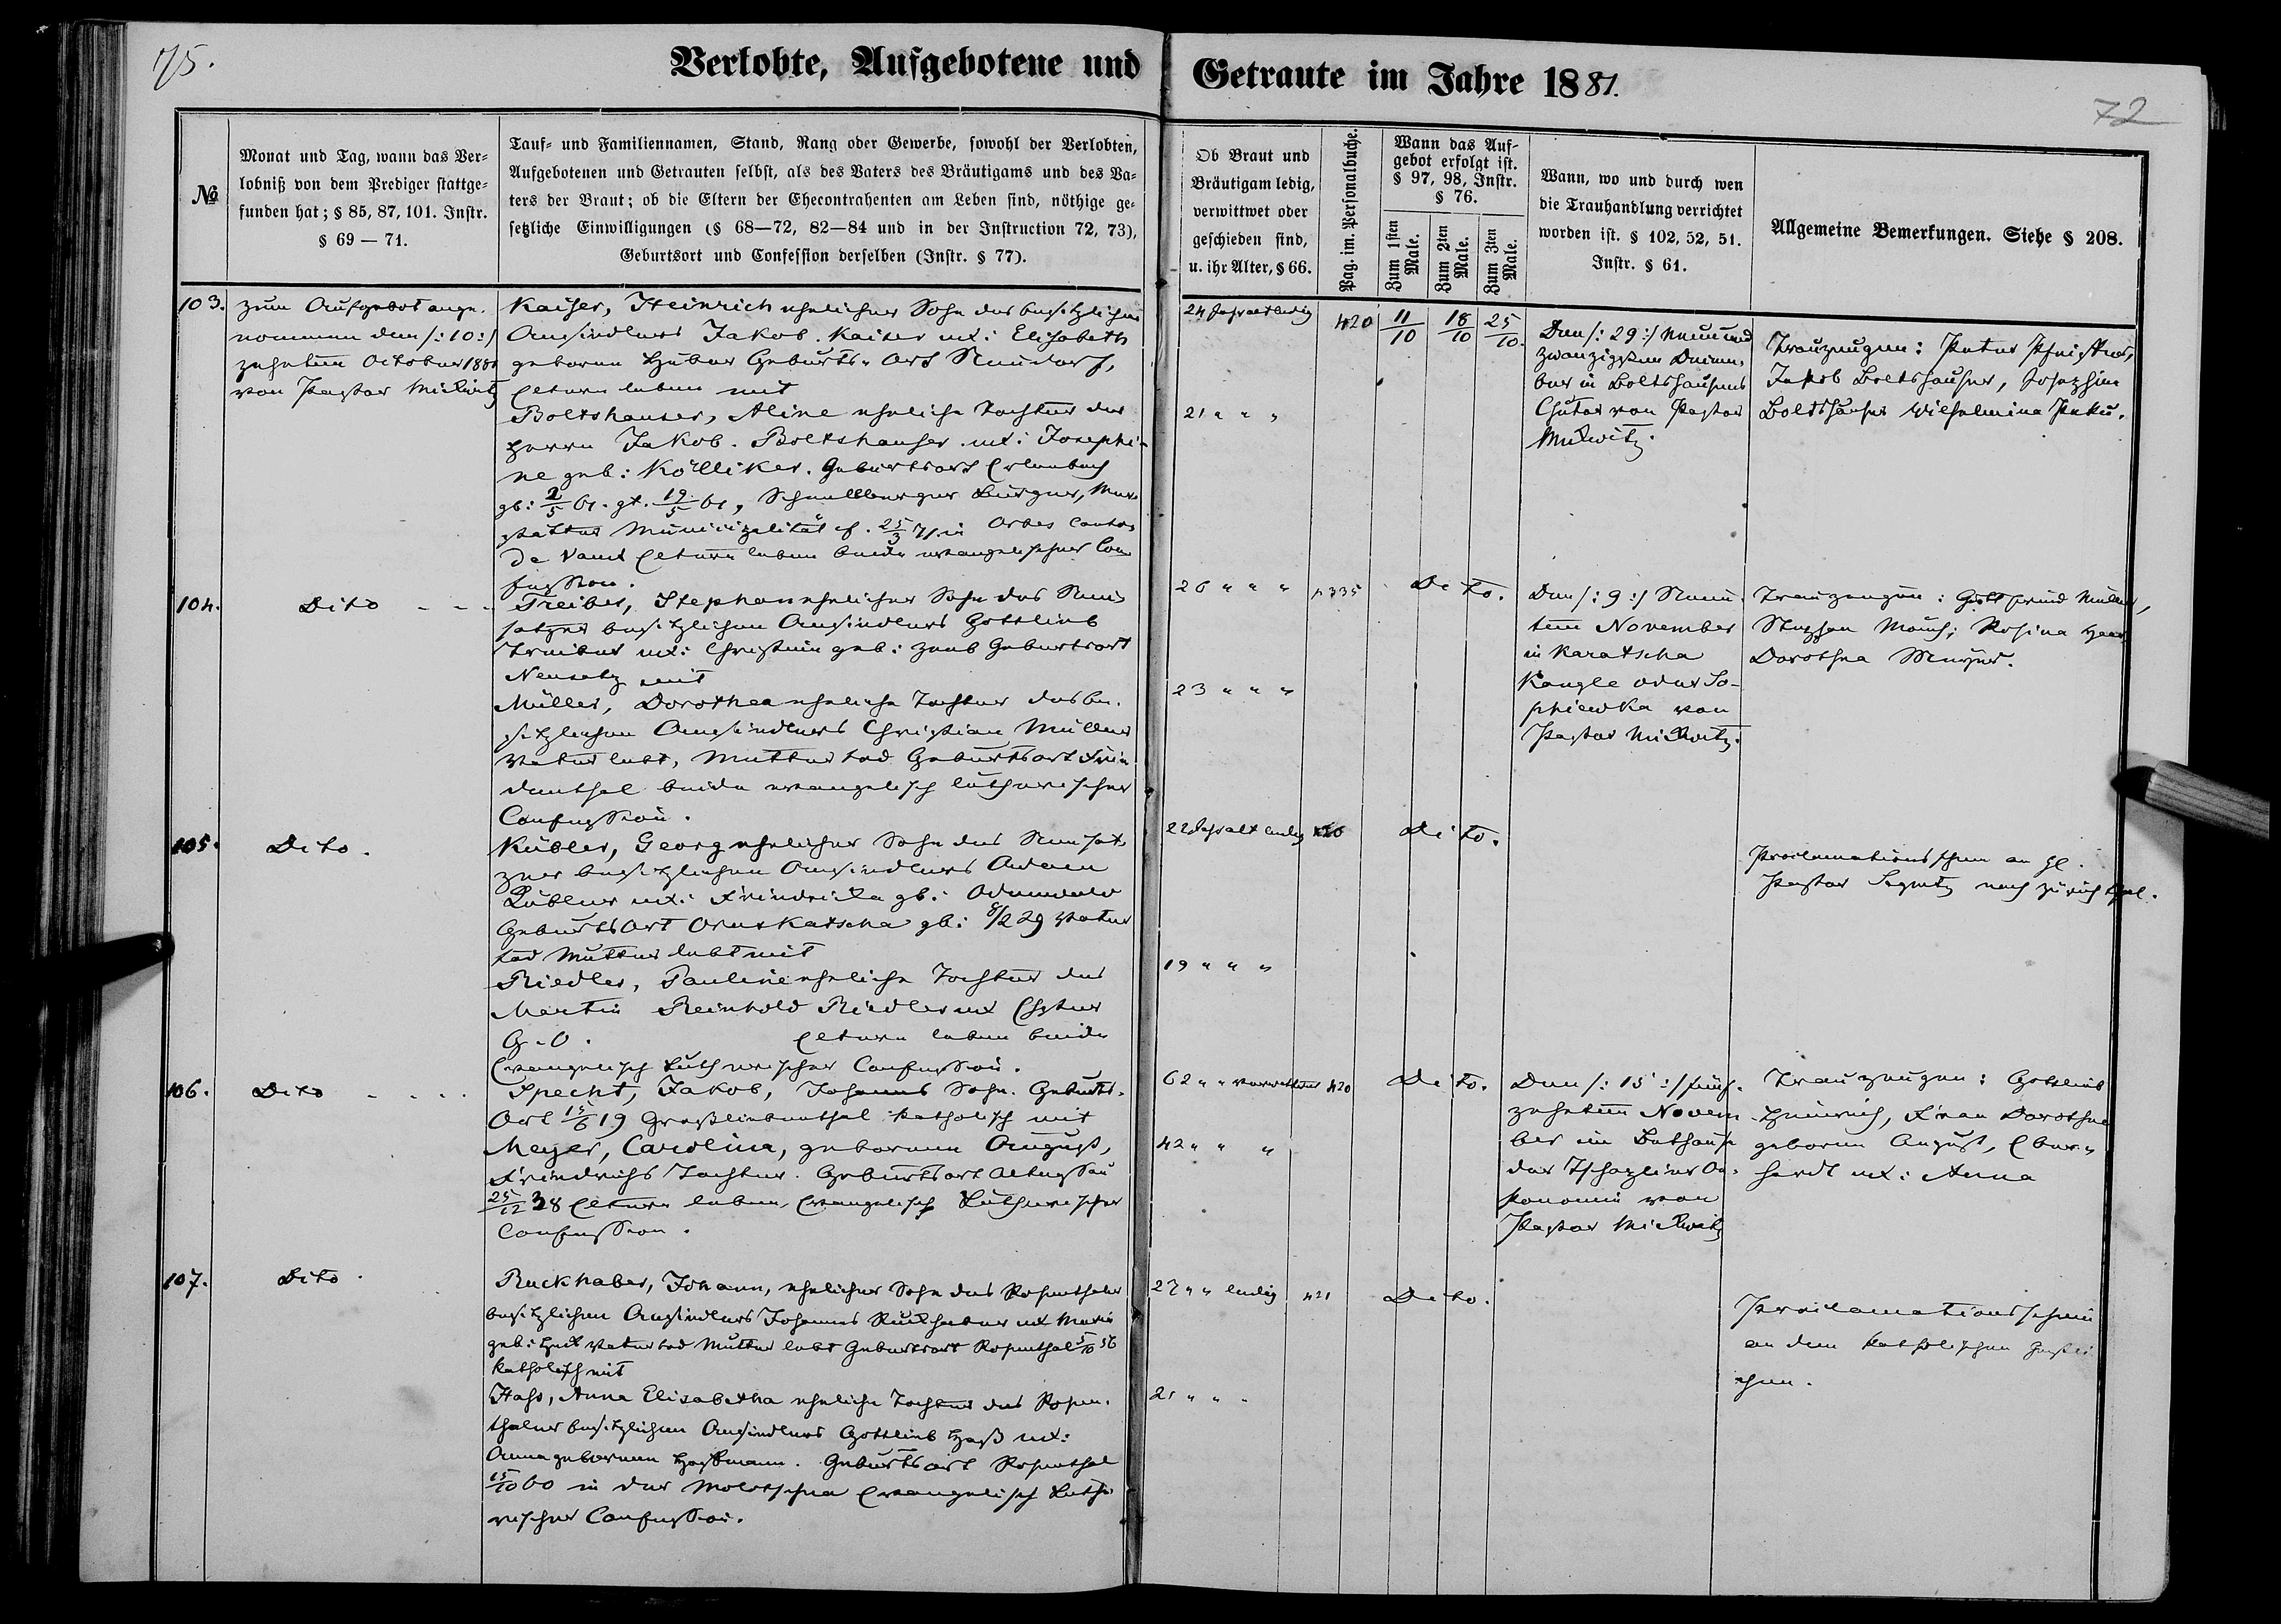 75.
Verlobte, Aufgebotene und Getraute im Jahre 1881.
72
№
Monat und Tag, wann das Ver-
lobniß von dem Prediger stattge-
funden hat; § 85, 87, 101. Instr.
§ 69 — 71.
Tauf- und Familiennamen, Stand, Rang oder Gewerbe, sowohl der Verlobten,
Aufgebotenen und Getrauten selbst, als des Vaters des Bräutigams und des Va-
ters der Braut; ob die Eltern der Ehecontrahenten am Leben sind, nöthige ge-
setzliche Einwilligungen (§ 68—72, 82—84 und in der Instruction 72, 73),
Geburtsort und Confession derselben (Instr. § 77).
Ob Braut und
Bräutigam ledig,
verwittwet oder
geschieden sind,
u. ihr Alter, § 66.
Pag. im. Personalbuche.
Wann das Auf-
gebot erfolgt ist.
§ 97, 98, Instr.
§ 76.
Zum 1sten Male.
Zum 2ten Male.
Zum 3ten Male.
Wann, wo und durch wen
die Trauhandlung verrichtet
worden ist. § 102, 52, 51.
Instr. § 61.
Allgemeine Bemerkungen. Siehe § 208.
103.
zum Aufgebot ange-
nommen den /: 10 :/
zehnten October 1881
von Pastor Mickwitz
Kaiser, Heinrich ehelicher Sohn des besitzlichen
Ansiedlers Jakob Kaiser ux: Elisabeth
geborene Huber Geburts-Ort Neudorf,
Eltern leben mit
Boltshauser, Aline eheliche Tochter des
Herrn Jakob Boltshauser ux: Josephi-
ne geb: Kölliker. Geburtsort Erlenbach
gb: 2/5 61. gt. 19/5 61, Bürger,
Municipalität cf. 25/3 71 in Orbes Canton
de Vaud Eltern leben beide evangelischer Con
fession.
24 Jahr alt ledig
21 " " "
420
11/10
18/10
25/10.
Den /: 29 :/ neunund
zwanzigsten Decem-
ber in Boltshausers
Chutor von Pastor
Mickwitz.
Trauzeugen: Peter Pfeister,
Jakob Boltshauser, Josephine
Boltshauser Wilhelmina
104.
Dito - - -
Treiber, Stephan ehelicher Sohn des Neu
satzer besitzlichen Ansiedlers Gottlieb
Treiber ux: Christina geb: Zaeb Geburtsort
Neusatz mit
Müller, Dorothea eheliche Tochter des be-
sitzlichen Ansiedlers Christian Müller
Vater lebt, Mutter tod Geburtsort Frie
denthal beide evangelisch lutherischer
Confession.
26 " " "
23 " " "
p 335
Dito.
Den /: 9 :/ Neun-
ten November
in Karatscha
Kangle oder So-
phiewka von
Pastor Mickwitz.
Trauzeugen: Gottfried Müller,
Stephan Mauch; Rosina Haar
Dorothea
105.
Dito.
Kübler, Georg ehelicher Sohn des Neusat
zer besitzlichen Ansiedlers Adam
Kübler ux: Friedricka gb: Odenwald
Geburtsort Ornskatscha gb: 8/2 29 Vater
tod Mutter lebt mit
Riedler, Pauline eheliche Tochter des
Martin Reinhold Riedler ux Esther
G.O. Eltern leben beide
Evangelisch Lutherischer Confession.
22 Jahr alt ledig
19 " " "
Dito.
Proclamationsschein an H.
Pastor nach Zürich
106.
Dito - - - -
Specht, Jakob, Johanns Sohn. Geburts-
Ort 15/6 19 Großliebenthal katholisch mit
Meyer, Carolina, geborene August,
Friedrichs Tochter. Geburtsort
25/12 38 Eltern leben, Evangelisch Lutherischer
Confession.
62 " " verwittwet
42 " " "
420
Dito.
Den /: 15 :/ fünf-
zehnten Novem
ber im Bethause
der Tschaplier Oe-
konomie von
Pastor Mickwitz
Trauzeugen: Gottlieb
Heinrich, Frau Dorothea
geborene August, Eber-
hardt ux: Anna
107.
Dito.
Ruckhaber, Johann, ehelicher Sohn des Rosenthaler
besitzlichen Ansiedlers Johannes Ruckhaber ux Maria
geb: Heck Vater tod Mutter lebt Geburtsort Rosenthal 5/10 56
katholisch mit
Hahs, Anna Elisabetha eheliche Tochter des Rosen-
thaler besitzlichen Ansiedlers Gottlieb Haß ux:
Anna geborenen Hoffmann. Geburtsort Rosenthal
15/10 60 in der Molotschna Evangelisch Luthe
rischer Confession.
27 " " ledig
21 " " "
421
Dito.
Proclamationsschein
an den katholischen Geistli
chen.